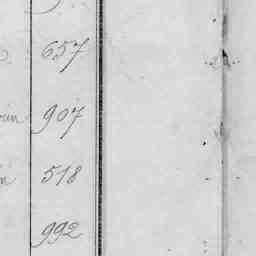 657
907
518
992